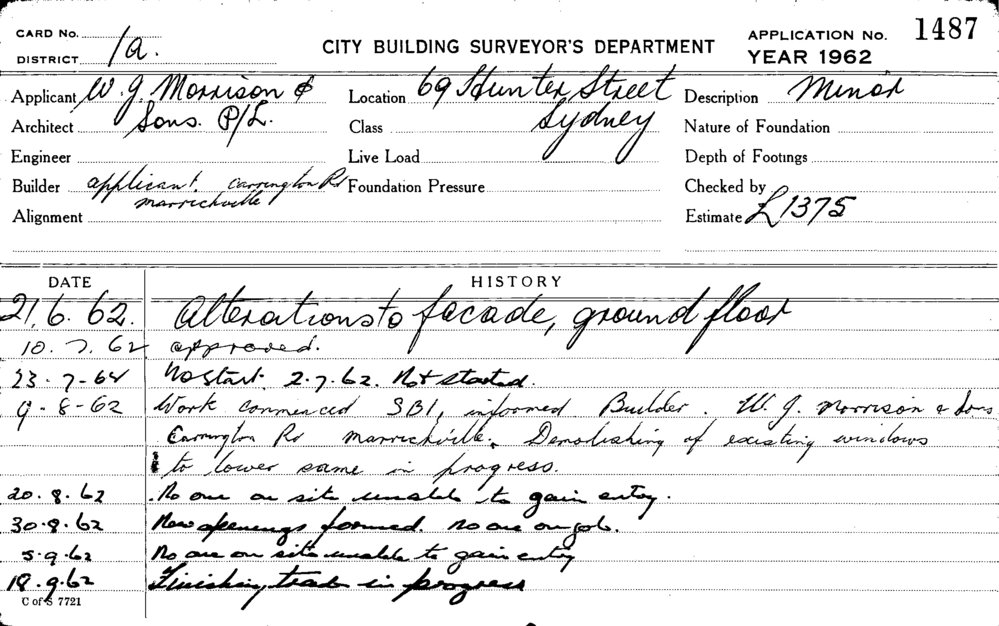 CARD No.
DISTRICT 1a.
CITY BUILDING SURVEYOR'S DEPARTMENT
APPLICATION No. 1487
YEAR 1962
Applicant W. J. Morrison &
Location 69 Hunter Street
Description Minor
Architect Sons. P/L.
Class Sydney
Nature of Foundation
Engineer
Live Load
Depth of Footings
Builder applicant. Carrington Rd
marrickville
Foundation Pressure
Checked by
Alignment
Estimate £1375
DATE HISTORY
21.6.62. Alterations to facade, ground floor
10.7.62 approved.
23.7-62 No start. 2.7.62. Not started.
9-8-62 Work commenced SBI, informed Builder. W. J. Morrison & Sons
Carrington Rd marrickville. Demolishing of existing windows
to lower same in progress.
20.8.62 No one on site unable to gain entry.
30.8.62 New openings formed. No one on job.
5.9.62 No one on site unable to gain entry
18.9.62 Finishing trades in progress
C of S 7721